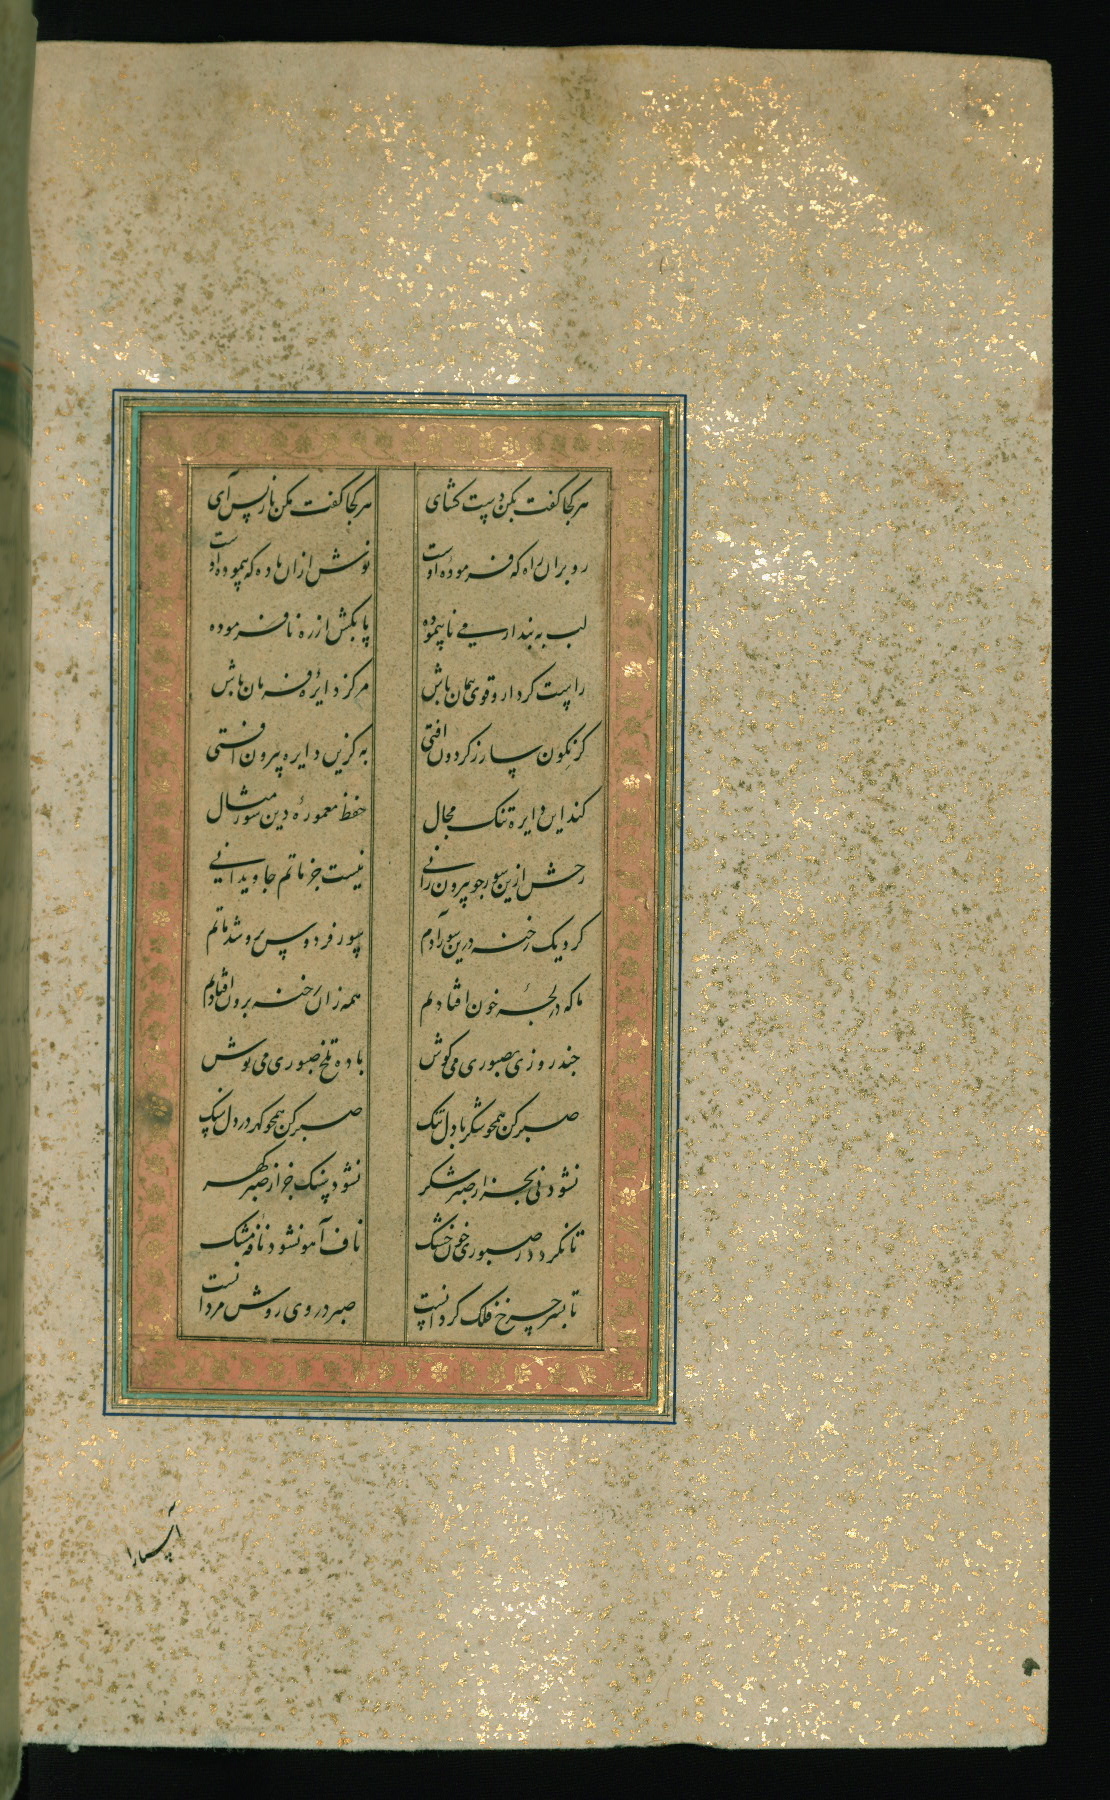 هر کجا گفت بکن دست کشای هر کجا گفت مکن بازپس آی
رو بران راه که فرموده اوست نوش ازان باده که پیموده اوست
لب به بند از می ناپیموده پا بکش از ره نافرموده
راست کردار و قوی پیمان باش مرکز دایره فرمان باش
کز نکون سار ز کردون افتی به کزین دایره بیرون افتی
کند این دایره تنک مجال حفظ معموره دین سور مثال
رخش ازین سور چو بیرون رانی نیست جز ماتم جاویدانی
کرد یک رخنه درین سور آدم سور فردوس برو شد ماتم
ما که در لجه خون افتادیم همه زان رخنه برون افتادیم
چند روزی بصبوری می کوش باده تلخ صبوری می نوش
صبر کن همچو شکر با دل تنک صبر کن همچو کهر در دل سنک
نشود نی بجز از صبر شکر نشود سنک جز از صبر کهر
تا نکردد ز صبوری خون خشک ناف آهو نشود نافه مشک
تا بسر چرخ فلک کردانست صبر در وی روش مردانست